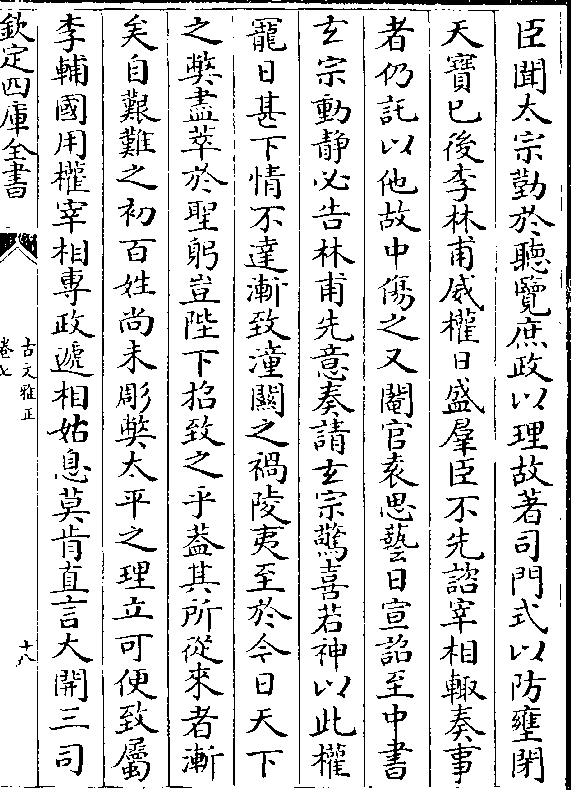 臣聞太宗勤於聽覽庶政以理故著司門式以防壅閉
天寳已後李林甫威權日盛羣臣不先諮宰相輙奏事
者仍託以他故中傷之又閹官袁思藝日宣詔至中書
玄宗動静必告林甫先意奏請玄宗驚喜若神以此權
寵日甚下情不達漸致潼關之禍陵夷至於今日天下
之獘盡萃於聖躬豈陛下招致之乎葢其所從來者漸
矣自艱難之初百姓尚未彫獘太平之理立可便致屬
李輔國用權宰相專政遞相姑息莫肯直言大開三司
欽定四庫全書
古文雅正
卷七
十八